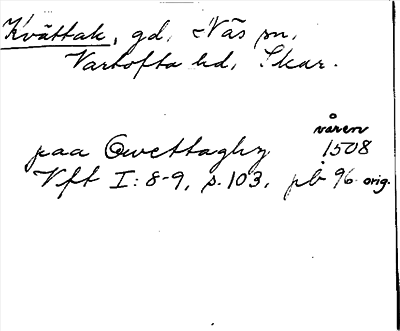 Kvättak, gd, Näs sn,
Vartofta hd, Skar.
våren
paa Qwettaghy 1508
Vft I: 8-9, s. 103, pb 96 orig.